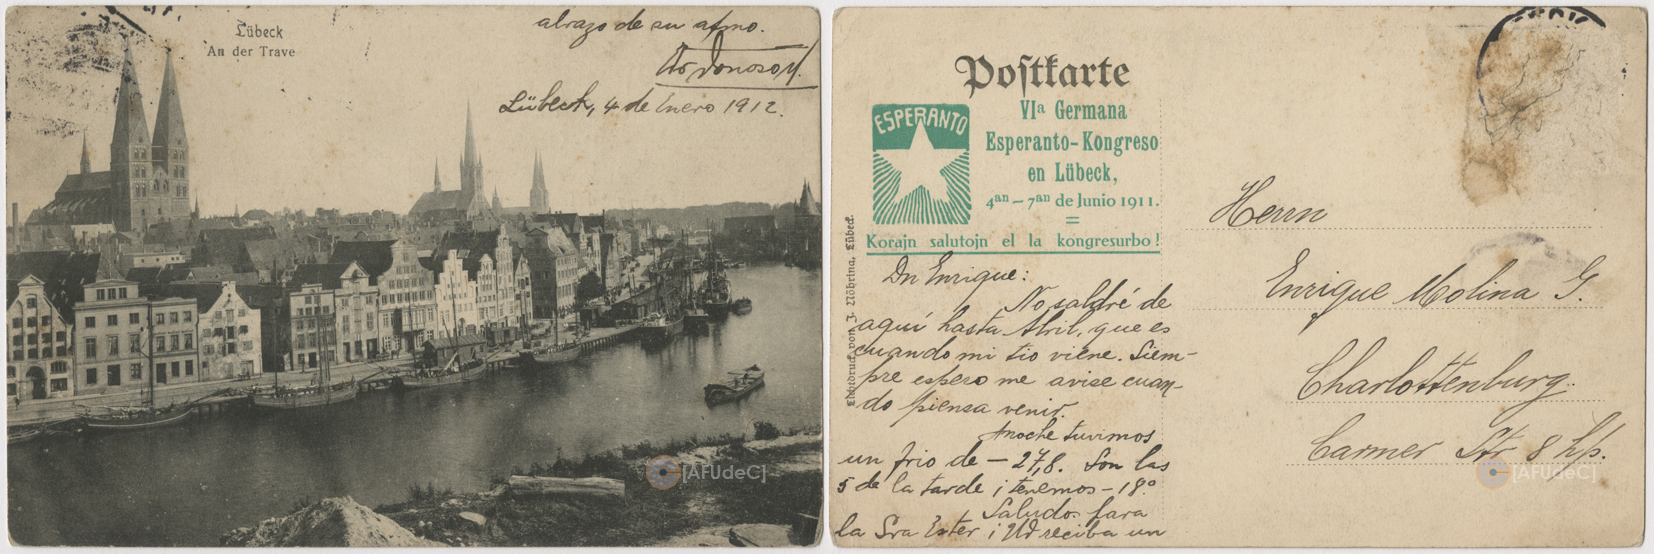 Lübeck
An der Trave
abrazo de su afmo.
Donoso
Lübeck, 4 de Enero 1912.
[AFUdeC]
Postkarte
ESPERANTO
VIa Germana
Esperanto-Kongreso
en Lübeck,
4an – 7an de Junio 1911.
Korajn salutojn el la kongresurbo!
Lichtdruck von J. Nöhring, Lübeck.
Dn Enrique:
No saldré de
aquí hasta Abril, que es
cuando mi tio viene. Siem-
pre espero me avise cuan-
do piensa venir.
Anoche tuvimos
un frio de – 27,8. Son las
5 de la tarde i tenemos – 18°
Saludos para
la Sra Ester i Ud reciba un
Herrn
Enrique Molina G.
Charlottenburg.
Carmer Str 8 hp.
[AFUdeC]